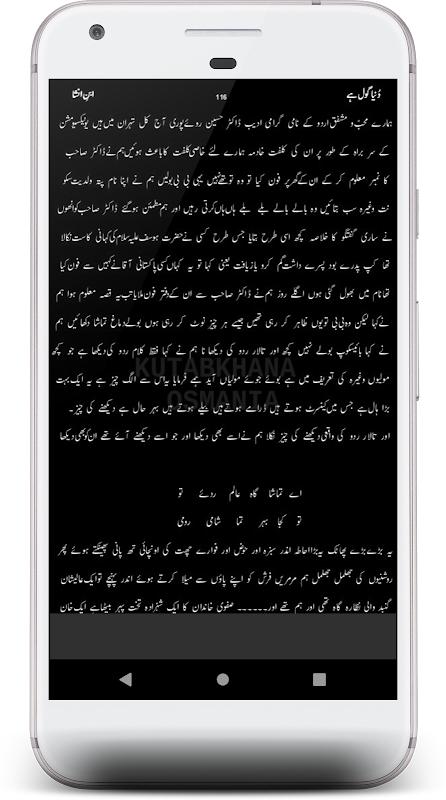 دُنیا گول ہے 116 ابنِ انشا
ہمارے محبّ و مشفق اردو کے نامی گرامی ادیب ڈاکٹر حسین روئے پوری آج کل تہران میں ہیں یونیسکو مشن
کے سر براہ کے طور پر ان کی کلفت خادمہ ہمارے لئے خاصی کلفت کا باعث ہوئیں ہم نے ڈاکٹر صاحب
کا نمبر معلوم کر کے ان کے گھر پر فون کیا تو وہ تو تھے نہیں یہی بی بی بولیں ہم نے اپنا نام پتہ ولدیت سکو
نت وغیرہ سب بتائیں وہ بالے بالے بلے بلے ہاں ہاں کرتی رہیں اور ہم مطمئن ہو گئے ڈاکٹر صاحب کو انھوں
نے ساری گفتگو کا خلاصہ کچھ اسی طرح بتایا جس طرح کسی نے حضرت یوسف علیہ سلام کی کہانی کا ست نکالا
تھا کہ پدرے بود پسرے داشت گم کرد باز یافت یعنی کہا تو یہ کہا کسی پاکستانی آقا نے کہیں سے فون کیا
تھا نام میں بھول گئی ہوں اگلے روز ہم نے ڈاکٹر صاحب سے ان کے دفتر فون ملایا تب یہ قصہ معلوم ہوا ہم
نے کہا لیکن وہ بی بی تو یوں ظاہر کر رہی تھیں جیسے ہر چیز نوٹ کر رہی ہوں بولے دماغ تماشا دکھائیں ہم
نے کہا بائیسکوپ بولے نہیں کچھ اور تالار رودکی دیکھا نا ہم نے کہا فقط کلام رودکی دیکھا ہے جو کچھ
مولیوں وغیرہ کی تعریف میں ہے بوئے جوئے مولیاں آید ہمے فرمایا یہ اس سے الگ چیز ہے یہ ایک بہت
بڑا ہال ہے جس میں کنسرٹ ہوتے ہیں ڈرامے ہوتے ہیں بیلے ہوتے ہیں بہر حال ہے دیکھنے کی چیز ۔
اور تالار رودکی واقعی دیکھنے کی چیز نکلا ہم نے اسے بھی دیکھا اور جو اسے دیکھنے آئے تھے ان کو بھی دیکھا
KUTABKHANA
OSMANIA
اے تماشا گاہ عالم روئے تو
تو کجا بہر تما شامی روی
یہ بڑے بڑے پھاٹک یہ بڑا احاطہ اندر سبزہ اور حوض اور فوارے چھت کی اونچائی تک پانی پھینکتے ہوئے پھر
روشنیوں کی جھلمل جھلمل ہم مرمریں فرش کو اپنے پاؤں سے میلا کرتے ہوئے اندر پہنچے تو ایک عالیشان
گنبد والی نظارہ گاہ تھی اور ہم تھے اور۔۔۔۔۔۔ صفوی خاندان کا ایک شہزادہ تخت پہر بیٹھا ہے ایک خان